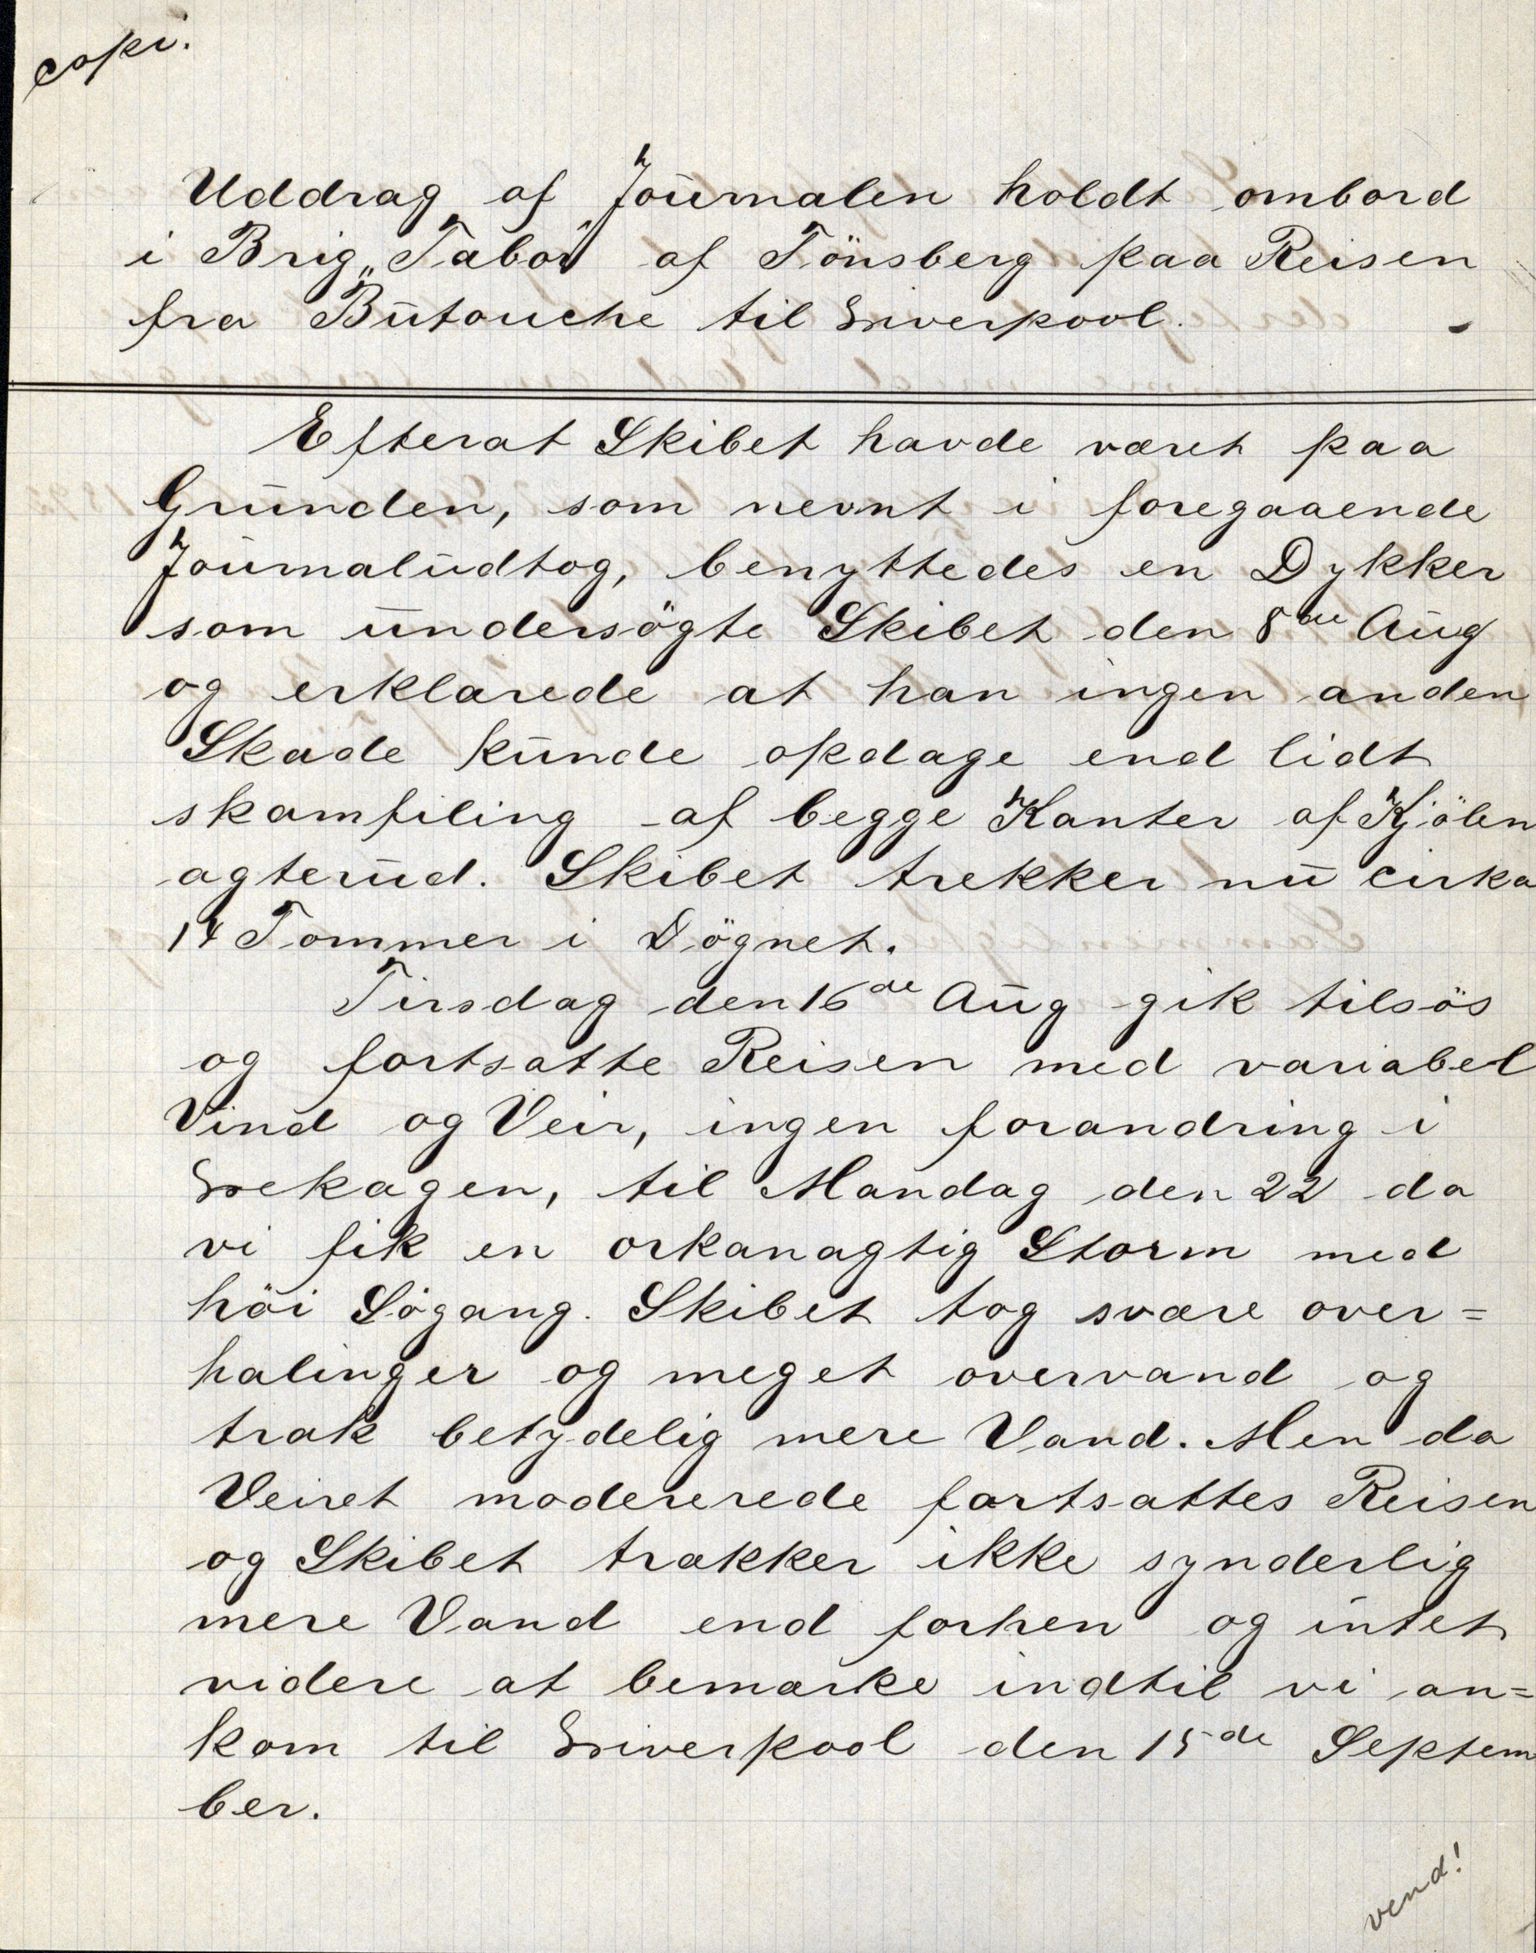 copi.
Uddrag af Journalen holdt ombord
i Brig „Tabor" af Tönsberg paa Reisen
fra Butouche til Liverpool.
Efterat Skibet havde været paa
Grunden, som nevnt i foregaaende
Journaludtog, benyttedes en Dykker
som undersögte Skibet den 8de Aug
og erklarede at han ingen anden
Skade kunde opdage end lidt
skamfiling af begge Kanter af Kjölen
agterud. Skibet trekker nu cirka
14 Tommer i Dögnet.
Tirsdag den 16de Aug gik tilsös
og fortsatte Reisen med variabel
Vind og Veir, ingen forandring i
Lekagen, til Mandag den 22 da
vi fik en orkanagtig Storm med
höi Sögang. Skibet tog svære over=
halinger og meget overvand og
trak betydelig mere Vand. Men da
Veiret modererede fortsattes Reisen
og Skibet trækker ikke synderlig
mere Vand end forhen og intet
videre at bemærke indtil vi an=
kom til Liverpool den 15de Septem
ber.
vend!